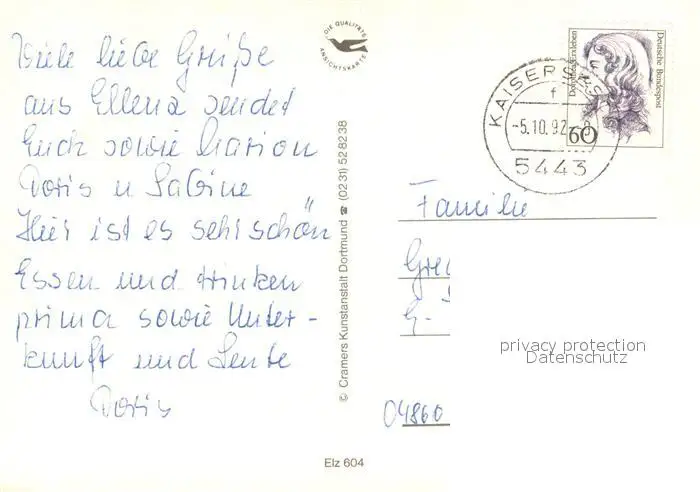 Viele liebe Grüße
aus Ellenz sendet
Euch sowie Marion
Doris u Sabine
Hier ist es sehr schön
Essen und trinken
prima sowie Unter-
kunft und Leute
Doris
DIE QUALITÄTS
ANSICHTSKARTE
© Cramers Kunstanstalt Dortmund ☎ (0231) 528238
Elz 604
Deutsche Bundespost
60
KAISERSESCH
f
-5.10.92
5443
Familie
04860
privacy protection
Datenschutz